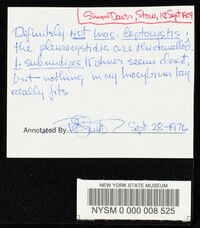 Simon Davis, Stow, 18 Sept 1909
Definitely not Inoc. leptocystis;
the pleurocystidia are thickwalled.
I. subnudipes Kühner seems closest,
but nothing in my Inocybium key
really fits
Annotated By Sept. 28-1976
NEW YORK STATE MUSEUM
NYSM 0 000 008 525